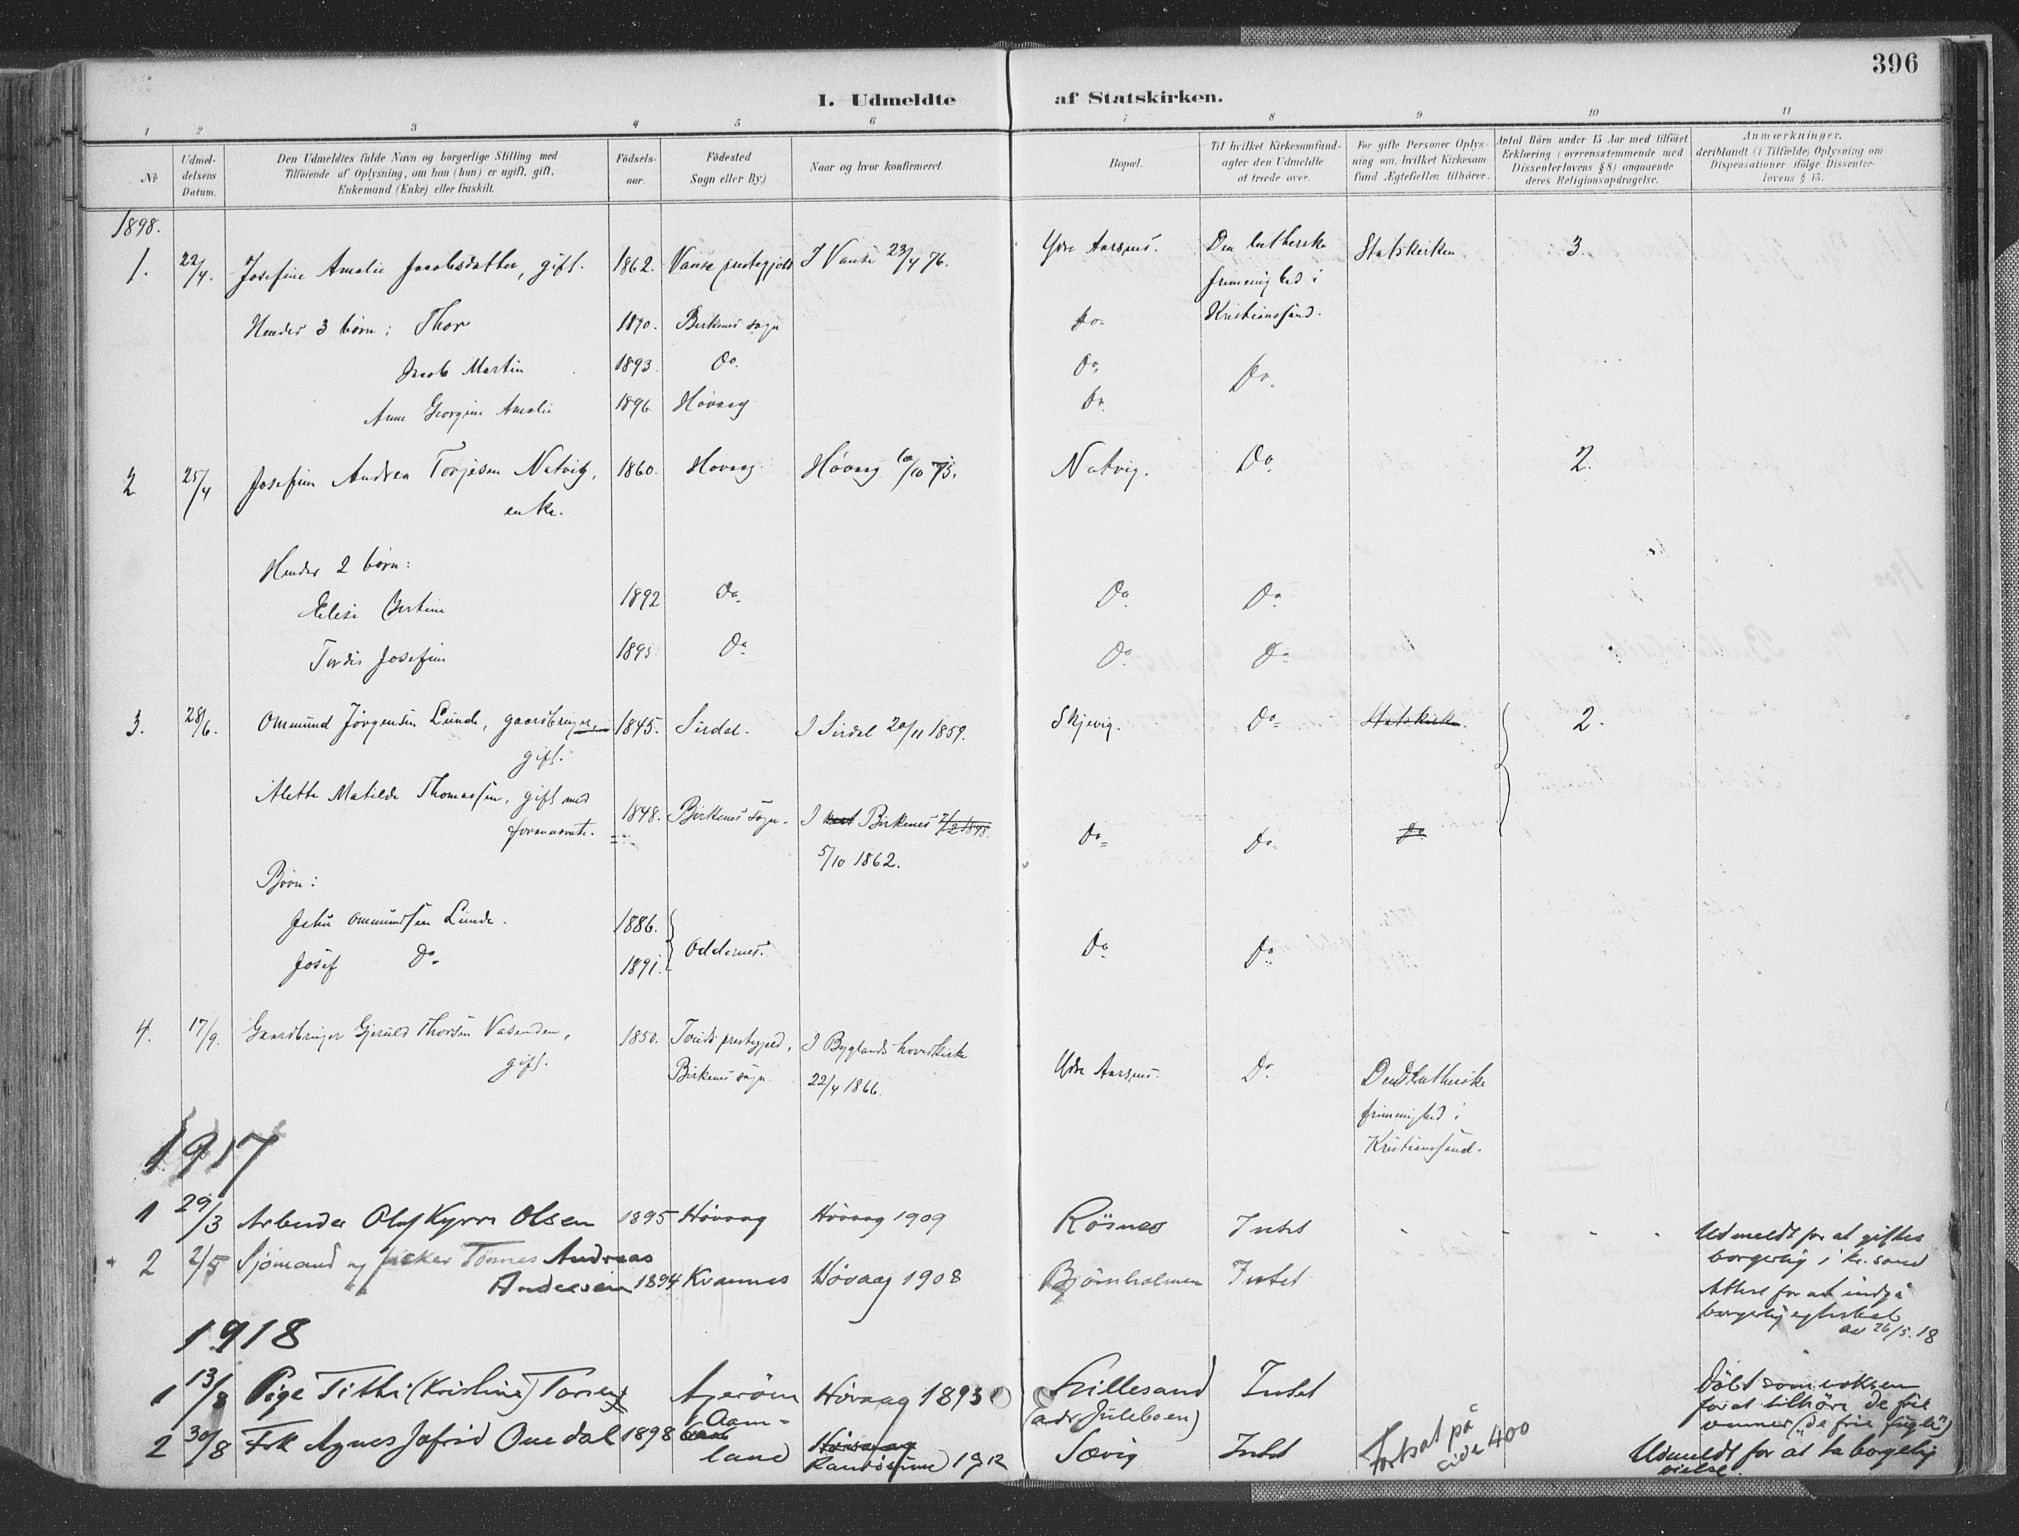 396
I. Udmeldte af Statskirken.
1 2 3 4 5 6 7 8 9 10 11
No
Udmel-
delsens
Datum.
Den Udmeldtes fulde Navn og borgerlige Stilling med
Tilføiende af Oplysning, om han (hun) er ugift, gift,
Enkemand (Enke) eller fraskilt.
Fødsels-
aar.
Fødested
Sogn eller By.)
Naar og hvor konfirmeret.
Bopæl.
Til hvilket Kirkesamfund
agter den Udmeldte
at træde over.
For gifte Personer Oplys-
ning om, hvilket Kirkesam-
fund Ægtefællen tilhører.
Antal Børn under 15 Aar med tilføiet
Erklæring (overensstemmende med
Dissenterlovens § 8) angaaende
deres Religionsopdragelse.
Anmærkninger,
deriblandt (i Tilfælde) Oplysning om
Dispensationer ifølge Dissenter-
lovens § 15.
1898.
1. 22/4. Josefine Amalie Jacobsdatter, gift. 1862. Vanse prestegjeld I Vanse 23/4 76. Ydre Aarsnes. Den lutherske Statskirken 3.
frimenighed i
Kristianssand.
Hendes 3 børn: Thor 1890. Birkenes sogn Do.
Jacob Martin 1893. Do. Do. Do.
Anne Georgine Amalie 1896. Høvaag Do.
2 25/4 Josefine Andrea Torjesen Natvig, 1860. Høvaag. Høvaag 10/10 75. Natvig. Do. 2.
enke.
Hendes 2 børn:
Elise Bertine 1892 Do. Do. Do.
Tordis Josefine 1895 Do. Do. Do.
3. 28/6. Ommund Jørgensen Lunde, gaardbruger, 1845. Sirdal. I Sirdal 20/11 1859. Skjevig. Do. Statskirken. 2.
gift.
Alette Matilde Thomassen, gift med 1848. Birkenes sogn. I Birkenes 7/2 1848.
forannævnte. Do. Do. Do
5/10 1862.
Børn:
Jehu Ommundsen Lunde. 1886.
Oddernes. Do. Do.
Josef Do. 1891.
4. 17/9. Gaardbruger Gjeruld Thorsen Vasenden, 1850. Tveids prestegjeld, I Byglands hovedkirke
gift. Birkenes sogn. 22/4 1866. Ydre Aarsnes. Do. Den lutherske
frimenighed i
Kristianssand.
1917
1 29/3 Arbeider Olaf Kyrre Olsen 1895 Høvaag Høvaag 1909 Røsnes Intet - - - Udmeldt for at giftes
borgerlig i Kr.sand
2 2/5 Sjømand og fisker Tønnes Andreas
Andersen 1894 Kvannes Høvaag 1908 Bjørnholmen Intet Attest for at indgå
borgerlig egteskab
av 26/5. 18
1918
1 13/3 Pige Titti (Kristine) Torsen Agerøen Høvaag 1893 Lillesand Intet Døbt som voksen
(adr Juleboen) for at tilhøre de frie
venner ("de frie fugle")
2 30/8 Frk Agnes Jofrid Omedal 1898 Aam-
land Høvaag Randøsund 1912 Sævig Intet Fortsat på
side 400
Udmeldt for at ta borgelig
vielse.